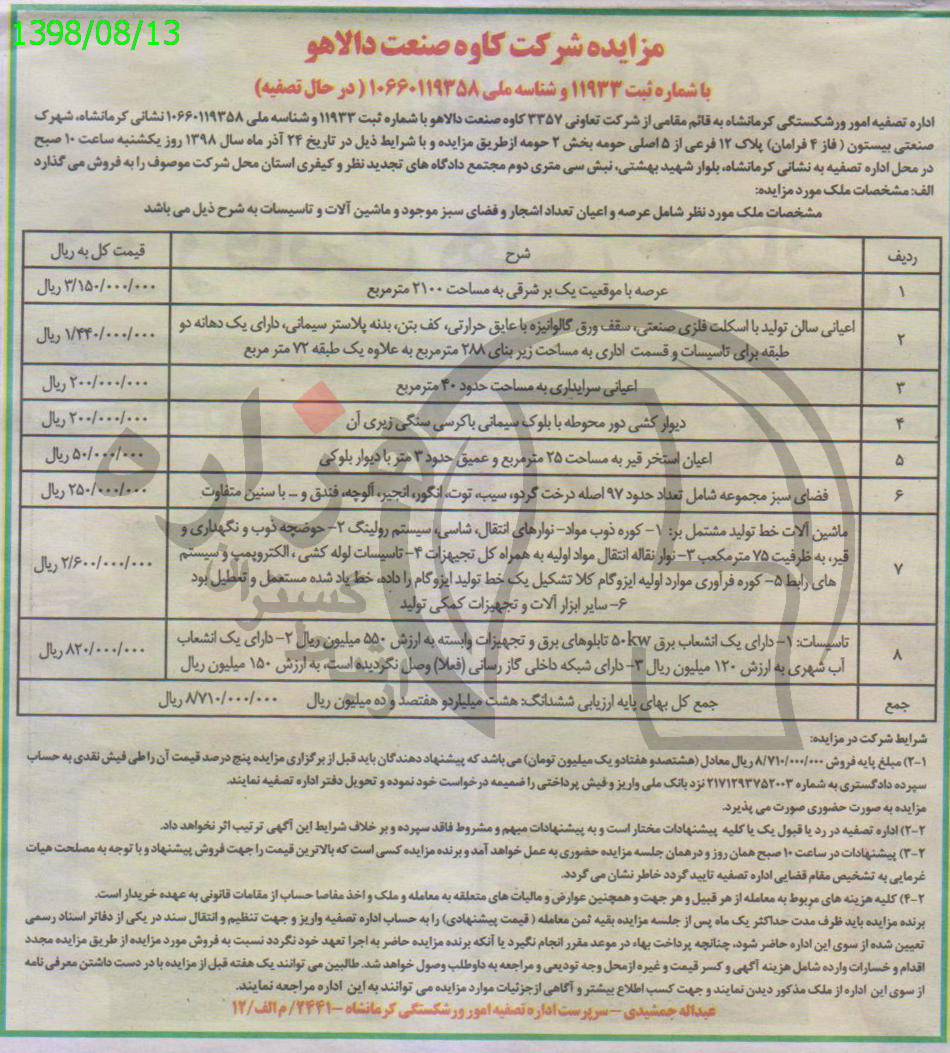 1398/08/13
مزایده شرکت کاوه صنعت دالاهو
با شماره ثبت ۱۱۹۳۳ و شناسه ملی ۱۰۶۶۰۱۱۹۳۵۸ ( در حال تصفیه)
اداره تصفیه امور ورشکستگی کرمانشاه به قائم مقامی از شرکت تعاونی ۳۳۵۷ کاوه صنعت دالاهو با شماره ثبت ۱۱۹۳۳ و شناسه ملی ۱۰۶۶۰۱۱۹۳۵۸ نشانی کرمانشاه، شهرک
صنعتی بیستون ( فاز ۴ فرامان) پلاک ۱۲ فرعی از ۵ اصلی حومه بخش ۲ حومه ازطریق مزایده و با شرایط ذیل در تاریخ ۲۴ آذر ماه سال ۱۳۹۸ روز یکشنبه ساعت ۱۰ صبح
در محل اداره تصفیه به نشانی کرمانشاه، بلوار شهید بهشتی، نبش سی متری دوم مجتمع دادگاه های تجدید نظر و کیفری استان محل شرکت موصوف را به فروش می گذارد
الف: مشخصات ملک مورد مزایده:
مشخصات ملک مورد نظر شامل عرصه و اعیان تعداد اشجار و فضای سبز موجود و ماشین آلات و تاسیسات به شرح ذیل می باشد
ردیف شرح قیمت کل به ریال
۱ عرصه با موقعیت یک بر شرقی به مساحت ۲۱۰۰ مترمربع ۳/۱۵۰/۰۰۰/۰۰۰ ریال
۲ اعیانی سالن تولید با اسکلت فلزی صنعتی، سقف ورق گالوانیزه با عایق حرارتی، کف بتن، بدنه پلاستر سیمانی، دارای یک دهانه دو
طبقه برای تاسیسات و قسمت اداری به مساحت زیر بنای ۲۸۸ مترمربع به علاوه یک طبقه ۷۲ متر مربع ۱/۴۴۰/۰۰۰/۰۰۰ ریال
۳ اعیانی سرایداری به مساحت حدود ۴۰ مترمربع ۲۰۰/۰۰۰/۰۰۰ ریال
۴ دیوار کشی دور محوطه با بلوک سیمانی باکرسی سنگی زیری آن ۲۰۰/۰۰۰/۰۰۰ ریال
۵ اعیان استخر قیر به مساحت ۲۵ مترمربع و عمیق حدود ۳ متر با دیوار بلوکی ۵۰/۰۰۰/۰۰۰ ریال
۶ فضای سبز مجموعه شامل تعداد حدود ۹۷ اصله درخت گردو، سیب، توت، انگور، انجیر، آلوچه، فندق و ... با سنین متفاوت ۲۵۰/۰۰۰/۰۰۰ ریال
۷ ماشین آلات خط تولید مشتمل بر: ۱- کوره ذوب مواد- نوارهای انتقال، شاسی، سیستم رولینگ ۲- حوضچه ذوب و نگهداری و
قیر، به ظرفیت ۷۵ مترمکعب ۳- نوار نقاله انتقال مواد اولیه به همراه کل تجهیزات ۴- تاسیسات لوله کشی ، الکتروپمپ و سیستم
های رابط ۵- کوره فرآوری موارد اولیه ایزوگام کلا تشکیل یک خط تولید ایزوگام را داده، خط یاد شده مستعمل و تعطیل بود
۶- سایر ابزار آلات و تجهیزات کمکی تولید ۲/۶۰۰/۰۰۰/۰۰۰ ریال
۸ تاسیسات: ۱- دارای یک انشعاب برق ۵۰kw تابلوهای برق و تجهیزات وابسته به ارزش ۵۵۰ میلیون ریال ۲- دارای یک انشعاب
آب شهری به ارزش ۱۲۰ میلیون ریال ۳- دارای شبکه داخلی گاز رسانی (فعلا) وصل نگردیده است، به ارزش ۱۵۰ میلیون ریال ۸۲۰/۰۰۰/۰۰۰ ریال
جمع جمع کل بهای پایه ارزیابی ششدانگ: هشت میلیاردو هفتصد و ده میلیون ریال ۸/۷۱۰/۰۰۰/۰۰۰ ریال
شرایط شرکت در مزایده:
۲-۱) مبلغ پایه فروش ۸/۷۱۰/۰۰۰/۰۰۰ ریال معادل (هشتصدو هفتادو یک میلیون تومان) می باشد که پیشنهاد دهندگان باید قبل از برگزاری مزایده پنج درصد قیمت آن را طی فیش نقدی به حساب
سپرده دادگستری به شماره ۲۱۷۱۲۹۳۷۵۲۰۰۳ نزد بانک ملی واریز و فیش پرداختی را ضمیمه درخواست خود نموده و تحویل دفتر اداره تصفیه نمایند.
مزایده به صورت حضوری صورت می پذیرد.
۲-۲) اداره تصفیه در رد یا قبول یک یا کلیه پیشنهادات مختار است و به پیشنهادات مبهم و مشروط فاقد سپرده و بر خلاف شرایط این آگهی ترتیب اثر نخواهد داد.
۲-۳) پیشنهادات در ساعت ۱۰ صبح همان روز و درهمان جلسه مزایده حضوری به عمل خواهد آمد و برنده مزایده کسی است که بالاترین قیمت را جهت فروش پیشنهاد و با توجه به مصلحت هیات
غرمایی به تشخیص مقام قضایی اداره تصفیه تایید گردد خاطر نشان می گردد.
۲-۴) کلیه هزینه های مربوط به معامله از هر قبیل و هر جهت و همچنین عوارض و مالیات های متعلقه به معامله و ملک و اخذ مفاصا حساب از مقامات قانونی به عهده خریدار است.
برنده مزایده باید ظرف مدت حداکثر یک ماه پس از جلسه مزایده بقیه ثمن معامله ( قیمت پیشنهادی) را به حساب اداره تصفیه واریز و جهت تنظیم و انتقال سند در یکی از دفاتر اسناد رسمی
تعیین شده از سوی این اداره حاضر شود، چنانچه پرداخت بهاء در موعد مقرر انجام نگیرد یا آنکه برنده مزایده حاضر به اجرا تعهد خود نگردد نسبت به فروش مورد مزایده از طریق مزایده مجدد
اقدام و خسارات وارده شامل هزینه آگهی و کسر قیمت و غیره ازمحل وجه تودیعی و مراجعه به داوطلب وصول خواهد شد. طالبین می توانند یک هفته قبل از مزایده با در دست داشتن معرفی نامه
از سوی این اداره از ملک مذکور دیدن نمایند و جهت کسب اطلاع بیشتر و آگاهی ازجزئیات موارد مزایده می توانند به این اداره مراجعه نمایند.
عبداله جمشیدی – سرپرست اداره تصفیه امور ورشکستگی کرمانشاه –۲۴۴۱/ م الف/۱۲